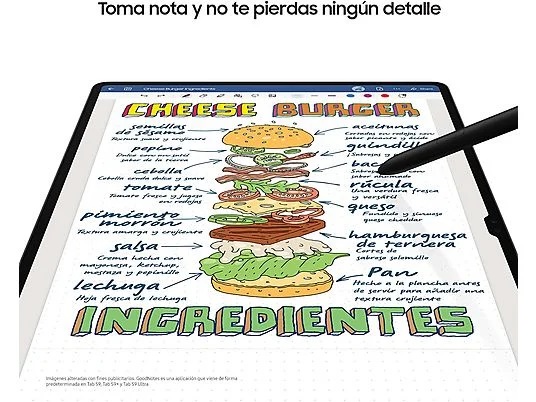 Toma nota y no te pierdas ningún detalle
Cheese Burger Ingredients
Share
CHEESE BURGER
semillas
de sésamo
Textura suave y crujiente
pepino
Dulce con sutil
sabor de la tierra
cebolla
Cebolla cruda dulce y suave
tomate
Tomate fresco y jugoso
en rodajas
pimiento
morrón
Textura amarga y crujiente
salsa
Crema hecha con
mayonesa, ketchup,
mostaza y pepinillo
lechuga
Hoja fresca de lechuga
aceitunas
Cortadas en rodajas con
sabor picante y ácido
guindill
¡Sabrosas y
bac
Sabroso con
sabor ahumado
rúcula
Una verdura fresca
y versátil
queso
Fundido y sinuoso
queso cheddar
hamburguesa
de ternera
Cortes de
sabroso solomillo
Pan
Hecho a la plancha antes
de servir para añadir una
textura crujiente
INGREDIENTES
Imágenes alteradas con fines publicitarios. GoodNotes es una aplicación que viene de forma
predeterminada en Tab S9, Tab S9+ y Tab S9 Ultra